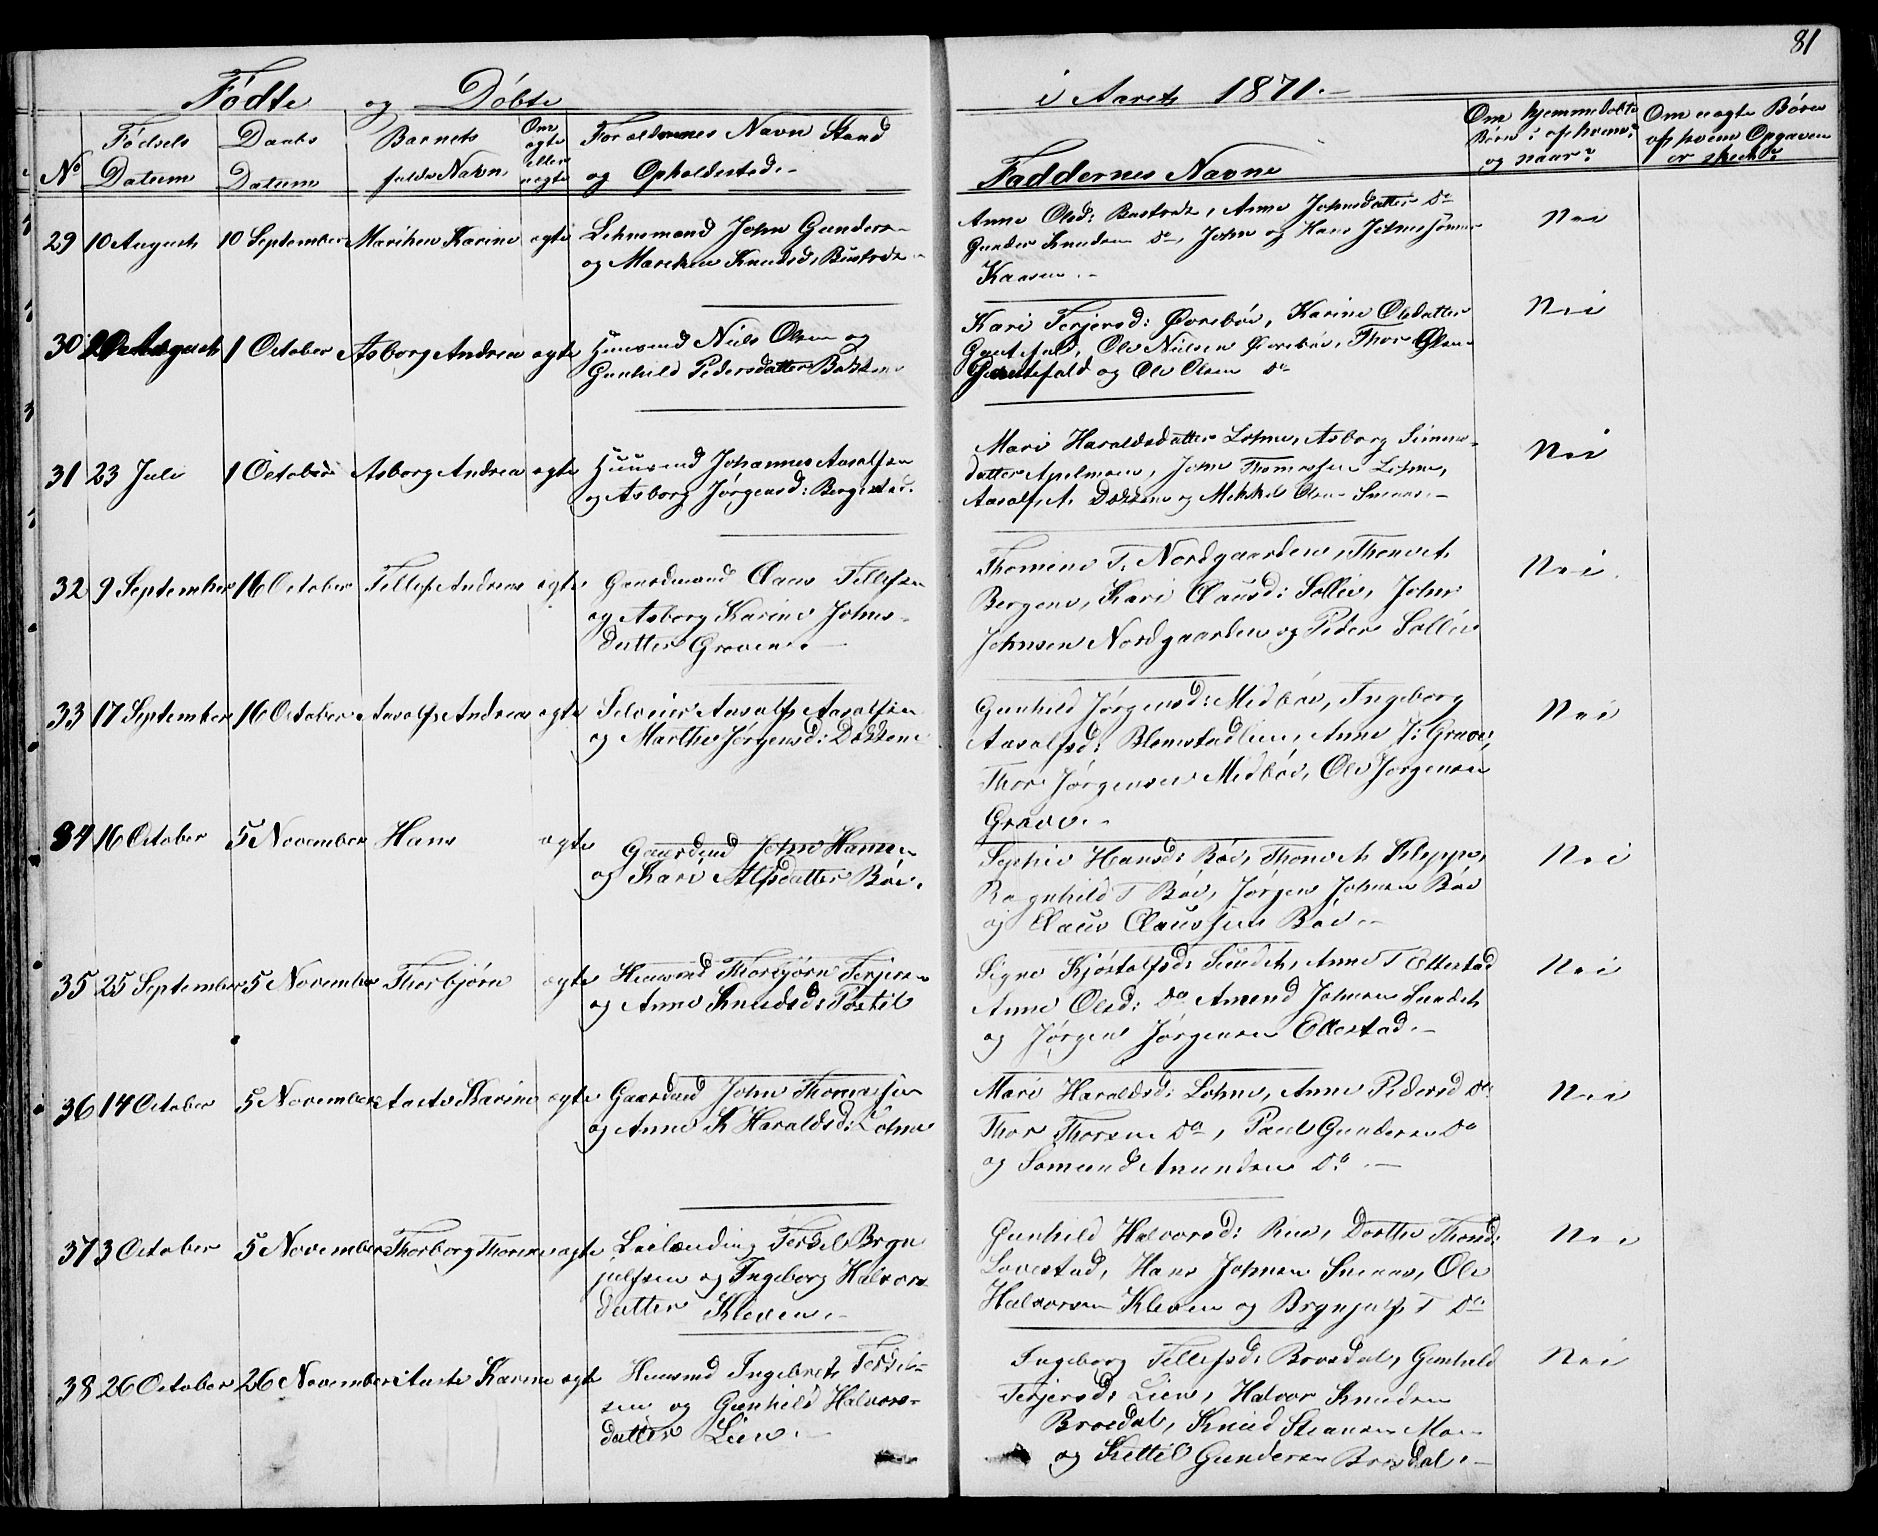 81
Fødte og Døbte i Aaret 1871.-
No
Fødsels Datum
Daabs Datum
Barnets fulde Navn
Om ægte eller uægte
Forældrenes Navn Stand og Opholdested.-
Faddernes Navne
Om hjemmedøbte Børn? af hvem? og naar?
Om uægte Børn af hvem Opgaven er skeed?
29 10 August 10 September Marichen Karine ægte
Lehnsmand John Gunders-
og Marichen Knudsd:
Anne Olsd: Anne Johnsdatter Do
Gunder Knudsen Do, John og Hans Johnssønner
Kaasen.-
Nei
30 August 1 October Asborg Andrea ægte
Huusmd Niels Olsen og
Gunhild Pedersdatter
Kari Terjersd: Øvrebøe, Karine Olsdatter
Ole Nielsen Øvrebøe, Thor Olsen
og Ole Olsen Do
Nei
31 23 Juli 1 October Asborg Andrea ægte
Huusmd Johannes Aasolfsen
og Asborg Jørgensd: Bergestad.
Mari Haraldsdatter Lohne, Asborg Simons-
datter John Thomassen Lohne,
Aasolf A. Dokken og Mikkel Olsen Sneaas.-
Nei
32 9 September 16 October Tellef Andreas ægte
Gaardmand Claus Tellefsen
og Asborg Karine Johns-
datter Graven.-
Thomine T. Nordgaarden, Thone A.
Bergene, Kari Clausd: Sollie, John
Johnsen Nordgaarden og Peder Sollie
Nei
33 17 September 16 October Aasolf Andreas ægte
Selveier Aasolf Aasolfsen
og Marthe Jørgensd: Dokken
Gunhild Jørgensd: Midbøe, Ingeborg
Aasolfsd: Anne J: Grave,
Thor Jørgensen Midbøe, Ole Jørgensen
Grave.-
Nei
34 16 October 5 November Hans ægte
Gaardmd John Hansen
og Kari Alfsdatter Bøe.
Sophie Hansd: Bøe, Thone A. Kleppe,
Ragnhild T Bøe, Jørgen Johnsen Bøe
og Claus Claussen Bøe.-
Nei
35 25 September 5 November Thorbjørn ægte
Huusmd Thorbjørn Terjesen
og Anne Knudsd:
Signe Kjøstolfsd: Sundet, Anne T Ettestad
Anne Olsd: Do Amund Johnsen Sundet
og Jørgen Jørgensen Ettestad.-
Nei
36 14 October 5 November Aaste Karine ægte
Gaardmd John Thomassen
og Anne K Haraldsd: Lohne
Mari Haraldsd: Lohne, Anne Pedersd Do
Thor Thorsen Do, Paul Gundersen Do
og Somund Amundsen Do.-
Nei
37 3 October 5 November Thorborg Thorine ægte
Leilænding Terkel Bryn
julfsen og Ingeborg Halvors-
datter Kleven.-
Gunhild Halvorsd: Dorthe Thorsd:
Lovestad, Hans Johnsen Sneaas, Ole
Halvorsen Kleven og Brynjulf T Do
Nei
38 26 October 26 November Aaste Karine ægte
Huusmd Ingebret Terkel-
sen og Gunhild Halvors-
datter Lien.-
Ingeborg Tellefsd: Brosdal, Gunhild
Terjersd: Lien, Halvor Knudsen
Brosdal, Knud Steansen Moe
og Kettil Gundersen Brosdal.-
Nei